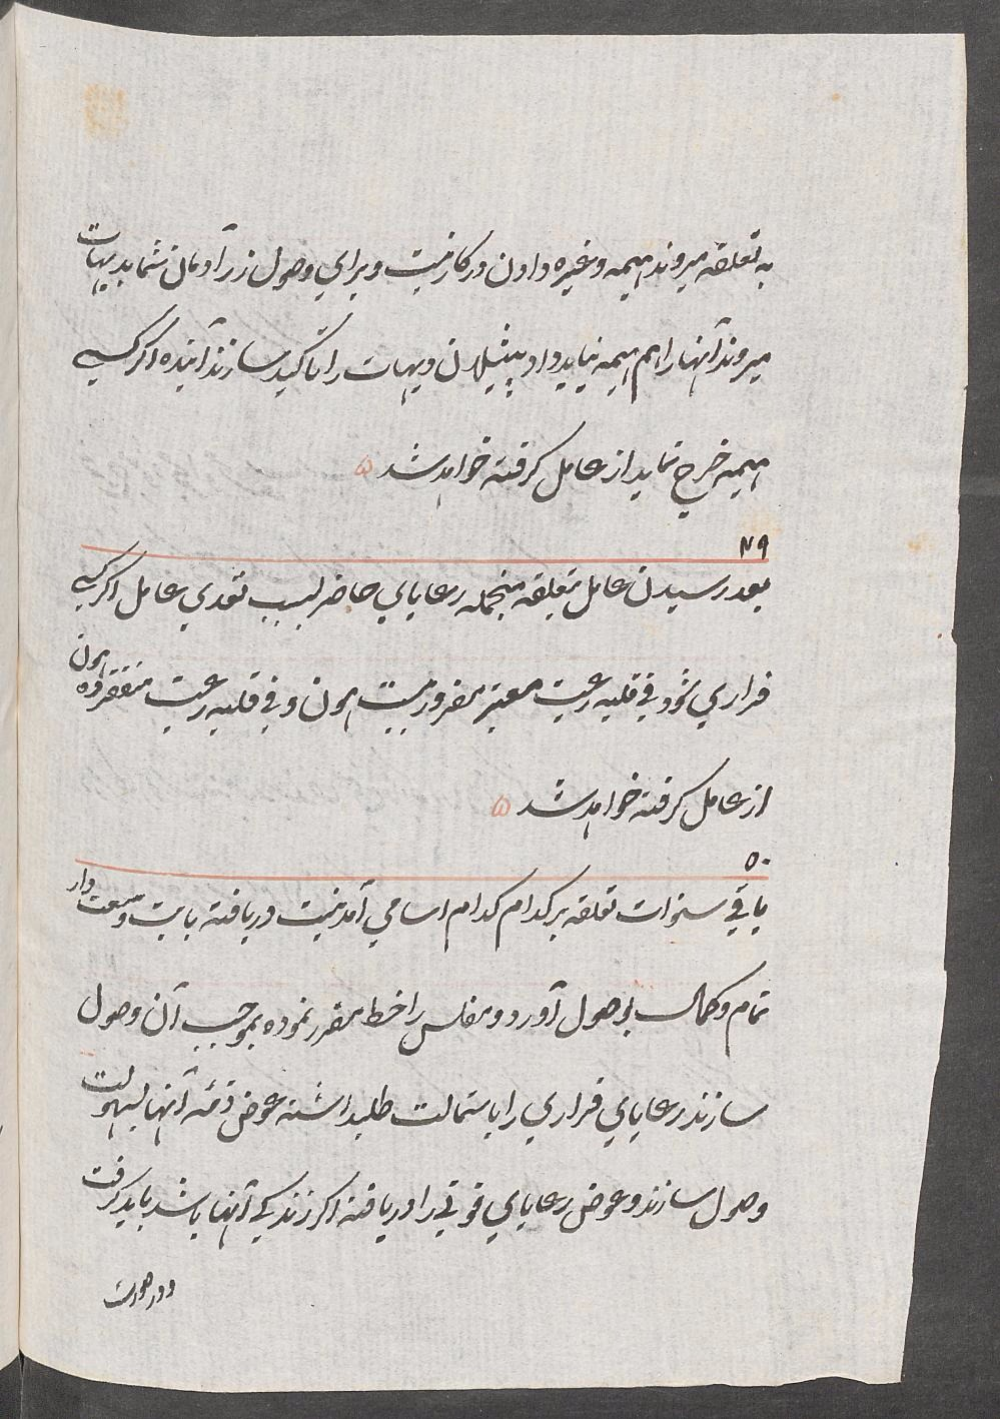 به تعلقه میروند هیمه و غیره دادن درکار نیست و برای وصول زر آدمان شما بدیهات
میروند آنها را هم هیمه نباید داد پٹیلان دیهات را تاکید سازند آینده اگر کسی
هیمه خرج نماید از عامل گرفته خواهد شد ۵
۴۹
بعد رسیدن عامل بتعلقه منجمله رعایای حاضر بسبب تعدی عامل اگر کسی
فراری شود فی قلبه رعیت معتبر مقرر بیست هون و فی قلبه رعیت متفرقه ده هون
از عامل گرفته خواهد شد ۵
۵۰
باقی سنوات تعلقه بر کدام کدام اسامی آمدنیست دریافته بابت وسعت‌دار
تمام و کمال بوصول آورد و مفلس را خط مقرر نموده بموجب آن وصول
سازند رعایای فراری را باستمالت طلبداشته عوض ذمه آنها بسهولت
وصول سازند و عوض رعایای فوتی را دریافته اگر زندگی آنها باشد باید گرفت
و در صورت